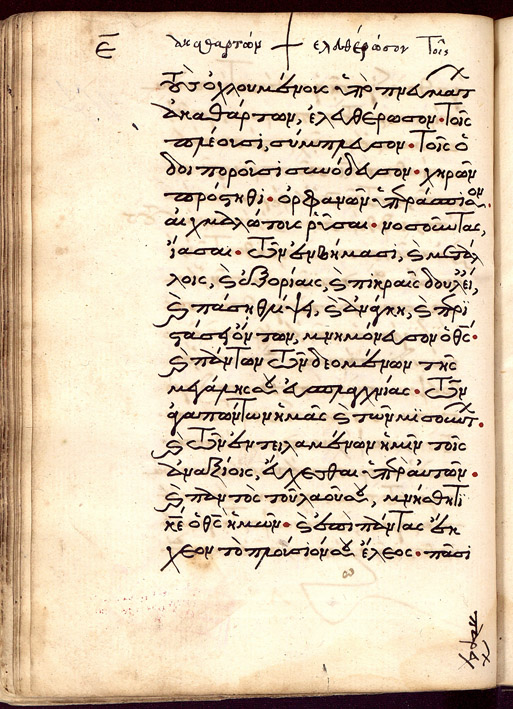 ε̅ ἀκαθαρτῶν ἐλευθέρωσον Τοῖς
τοὺς ὀχλουμένους ὑπὸ πνευμάτ
ἀκαθάρτων, ἐλευθέρωσον· τοῖς
πλέουσι, σύμπλευσον· τοῖς ὁ
δοιποροῦσι συνόδευσον· χηρῶν
πρόστηθι· ὀρφανῶν ὑπεράσπισον·
αἰχμαλώτους ῥῦσαι· νοσοῦντας,
ἴασαι· τῶν ἐν βήμασι, ϗ μετάλ
λοις, ϗ ἐξορίαις, ϗ πικραῖς δουλεί,
ϗ πάσῃ θλίψει, ϗ ἀνάγκῃ, ϗ περι
στάσει ὄντων, μνημόνευσον ὁ θς·
ϗ πάντων τῶν δεομένων τῆς
μεγάλης σου εὐσπλαγχνίας· τῶν
ἀγαπώντων ἡμᾶς ϗ τῶν μισούντ·
ϗ τῶν ἐντειλαμένων ἡμῖν τοῖς
ἀναξίοις, εὔχεσθαι ὑπὲρ αὐτῶν·
ϗ παντὸς τοῦ λαοῦ σου, μνήσθητι
κε ὁ θς ἡμῶν· ϗ ἐπὶ πάντας ἔκ
χεον τὸ πλούσιόν σου ἔλεος· πᾶσι